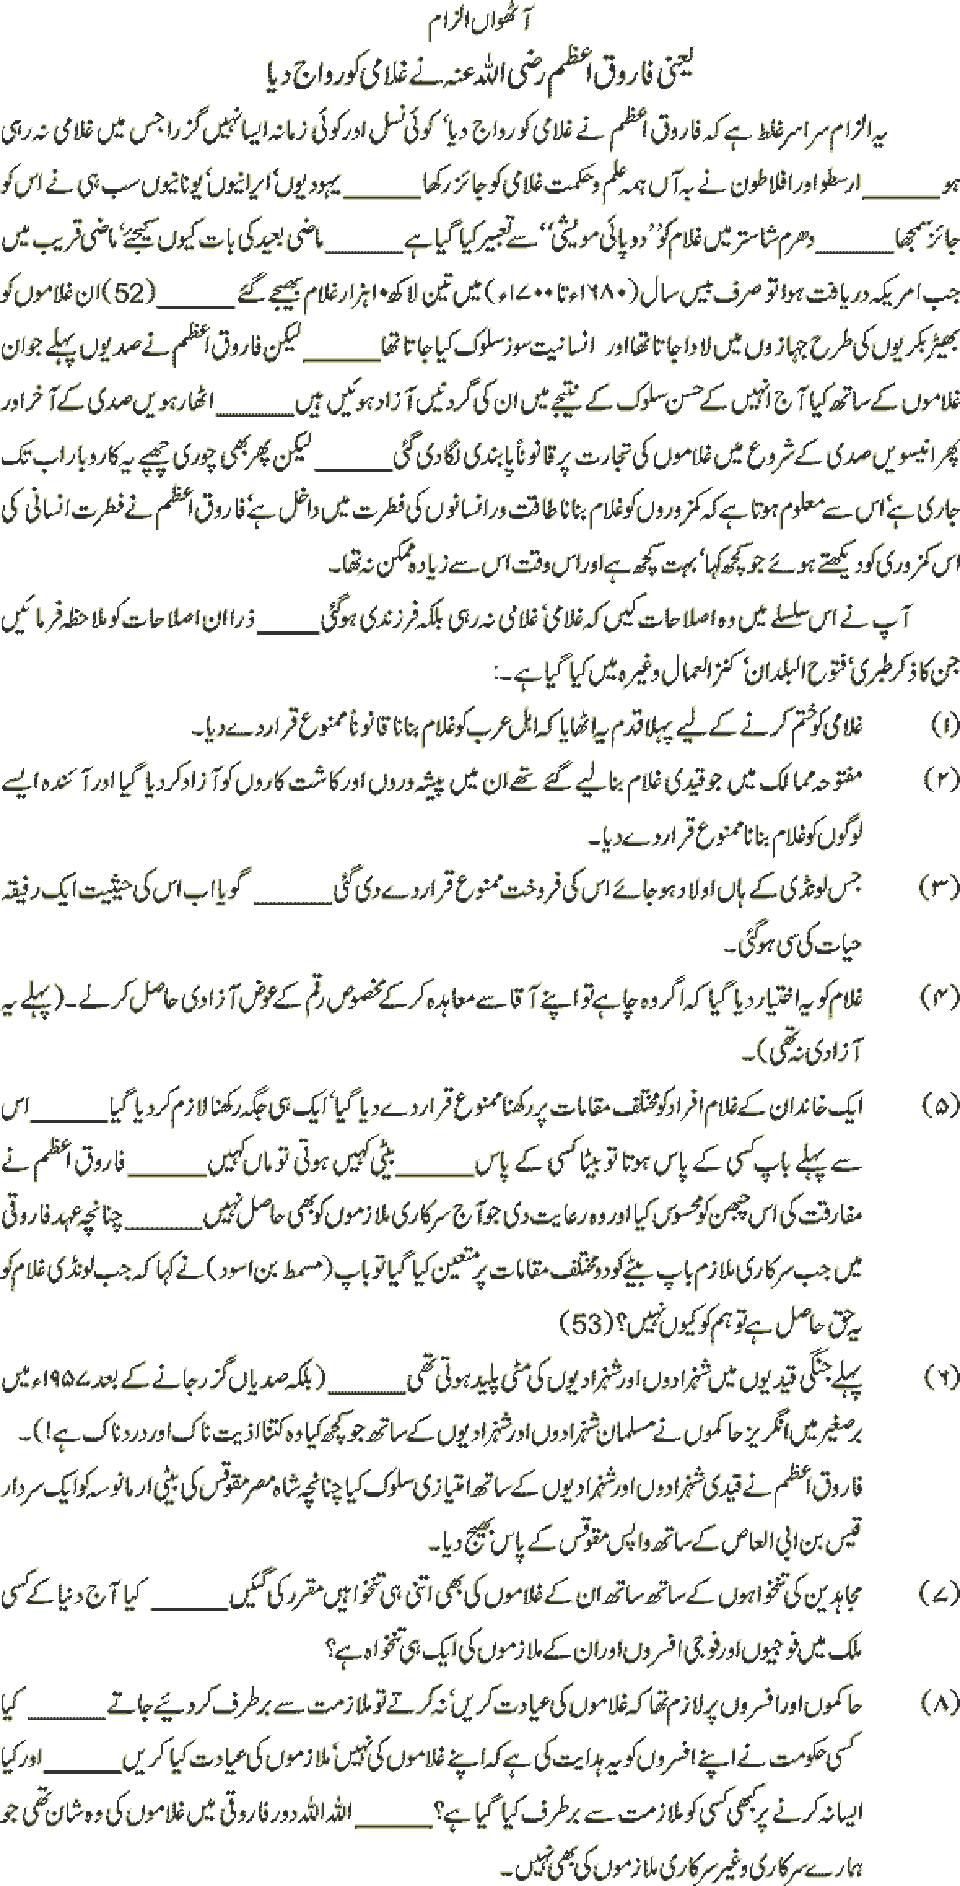 آٹھواں الزام
یعنی فاروق اعظم رضی اللہ عنہ نے غلامی کو رواج دیا
یہ الزام سراسر غلط ہے کہ فاروق اعظم نے غلامی کو رواج دیا‘ کوئی نسل اور کوئی زمانہ ایسا نہیں گزرا جس میں غلامی نہ رہی
ہو______ارسطو اور افلاطون نے بہ آں ہمہ علم و حکمت غلامی کو جائز رکھا______یہودیوں‘ ایرانیوں‘ یونانیوں سب ہی نے اس کو
جائز سمجھا______دھرم شاستر میں غلام کو ’’دوپائی مویشی‘‘ سے تعبیر کیا گیا ہے______ماضی بعید کی بات کیوں کیجئے‘ ماضی قریب میں
جب امریکہ دریافت ہوا تو صرف بیس سال (۱۶۸۰ء تا ۱۷۰۰ء) میں تین لاکھ ۱۰ ہزار غلام بھیجے گئے______(52) ان غلاموں کو
بھیڑ بکریوں کی طرح جہازوں میں لادا جاتا تھا اور انسانیت سوز سلوک کیا جاتا تھا______لیکن فاروق اعظم نے صدیوں پہلے جو ان
غلاموں کے ساتھ کیا آج انہیں کے حسن سلوک کے نتیجے میں ان کی گردنیں آزاد ہوئیں ہیں______اٹھارہویں صدی کے آخر اور
پھر انیسویں صدی کے شروع میں غلاموں کی تجارت پر قانوناً پابندی لگا دی گئی______لیکن پھر بھی چوری چھپے یہ کاروبار اب تک
جاری ہے‘ اس سے معلوم ہوتا ہے کہ کمزوروں کو غلام بنانا طاقت ور انسانوں کی فطرت میں داخل ہے‘ فاروق اعظم نے فطرت انسانی کی
اس کمزوری کو دیکھتے ہوئے جو کچھ کہا‘ بہت کچھ ہے اور اس وقت اس سے زیادہ ممکن نہ تھا۔
آپ نے اس سلسلے میں وہ اصلاحات کیں کہ غلامی‘ غلامی نہ رہی بلکہ فرزندی ہو گئی_____ذرا ان اصلاحات کو ملاحظہ فرمائیں
جن کا ذکر طبری‘ فتوح البلدان‘ کنز العمال وغیرہ میں کیا گیا ہے۔:
(۱) غلامی کو ختم کرنے کے لیے پہلا قدم یہ اٹھایا کہ اہل عرب کو غلام بنانا قانوناً ممنوع قرار دے دیا۔
(۲) مفتوحہ ممالک میں جو قیدی غلام بنا لیے گئے تھے ان میں پیشہ وروں اور کاشت کاروں کو آزاد کر دیا گیا اور آئندہ ایسے
لوگوں کو غلام بنانا ممنوع قرار دے دیا۔
(۳) جس لونڈی کے ہاں اولاد ہو جائے اس کی فروخت ممنوع قرار دے دی گئی______ گویا اب اس کی حیثیت ایک رفیقہ
حیات کی سی ہو گئی۔
(۴) غلام کو یہ اختیار دیا گیا کہ اگر وہ چاہے تو اپنے آقا سے معاہدہ کر کے مخصوص رقم کے عوض آزادی حاصل کر لے۔ (پہلے یہ
آزادی نہ تھی)۔
(۵) ایک خاندان کے غلام افراد کو مختلف مقامات پر رکھنا ممنوع قرار دے دیا گیا‘ ایک ہی جگہ رکھنا لازم کر دیا گیا______اس
سے پہلے باپ کسی کے پاس ہوتا تو بیٹا کسی کے پاس______بیٹی کہیں ہوتی تو ماں کہیں______فاروق اعظم نے
مفارقت کی اس چبھن کو محسوس کیا اور وہ رعایت دی جو آج سرکاری ملازموں کو بھی حاصل نہیں______چنانچہ عہد فاروقی
میں جب سرکاری ملازم باپ بیٹے کو دو مختلف مقامات پر متعین کیا گیا تو باپ (مسمط بن اسود) نے کہا کہ جب لونڈی غلام کو
یہ حق حاصل ہے تو ہم کو کیوں نہیں؟ (53)
(۶) پہلے جنگی قیدیوں میں شہزادوں اور شہزادیوں کی مٹی پلید ہوتی تھی______(بلکہ صدیاں گزر جانے کے بعد ۱۹۵۷ء میں
برصغیر میں انگریز حاکموں نے مسلمان شہزادوں اور شہزادیوں کے ساتھ جو کچھ کیا وہ کتنا اذیت ناک اور دردناک ہے!)۔
فاروق اعظم نے قیدی شہزادوں اور شہزادیوں کے ساتھ امتیازی سلوک کیا چنانچہ شاہ مصر مقوقس کی بیٹی ارمانوسہ کو ایک سردار
قیس بن ابی العاص کے ساتھ واپس مقوقس کے پاس بھیج دیا۔
(۷) مجاہدین کی تنخواہوں کے ساتھ ساتھ ان کے غلاموں کی بھی اتنی ہی تنخواہیں مقرر کی گئیں______ کیا آج دنیا کے کسی
ملک میں فوجیوں اور فوجی افسروں اور ان کے ملازموں کی ایک ہی تنخواہ ہے؟
(۸) حاکموں اور افسروں پر لازم تھا کہ غلاموں کی عیادت کریں‘ نہ کرتے تو ملازمت سے برطرف کر دیئے جاتے______ کیا
کسی حکومت نے اپنے افسروں کو یہ ہدایت کی ہے کہ اپنے غلاموں کی نہیں‘ ملازموں کی عیادت کیا کریں______اور کیا
ایسا نہ کرنے پر کبھی کسی کو ملازمت سے برطرف کیا گیا ہے؟______اللہ اللہ دور فاروقی میں غلاموں کی وہ شان تھی جو
ہمارے سرکاری و غیر سرکاری ملازموں کی بھی نہیں۔